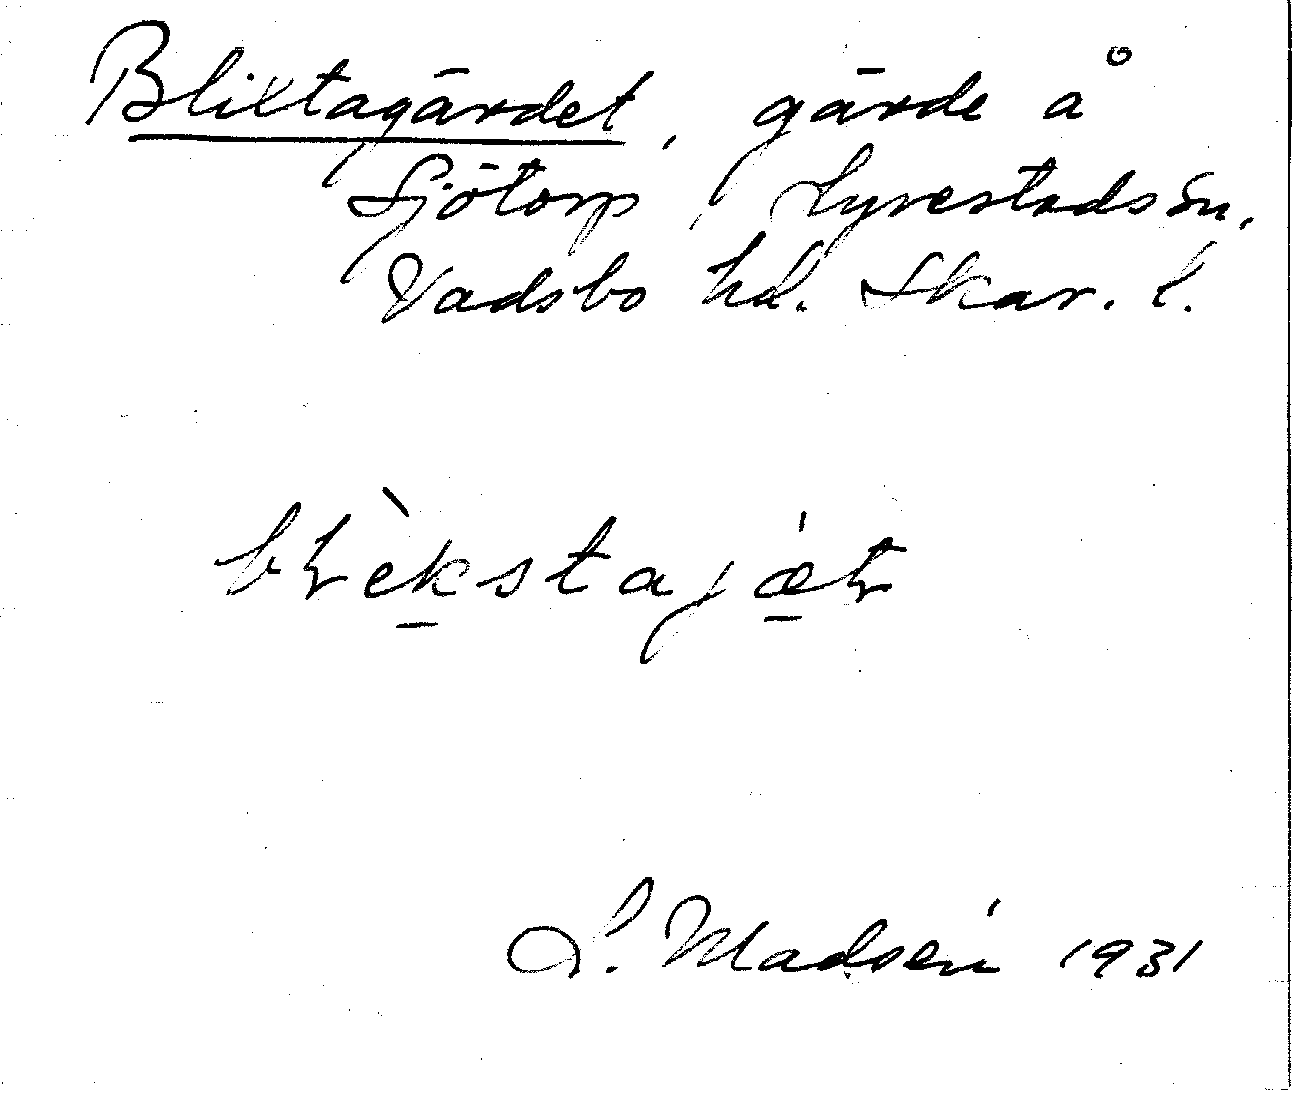 Blixtagärdet, gärde å
Sjötorp, Lyrestads sn.
Vadsbo hd. Skar. l.
blèkstajæt
L. Madsén 1931